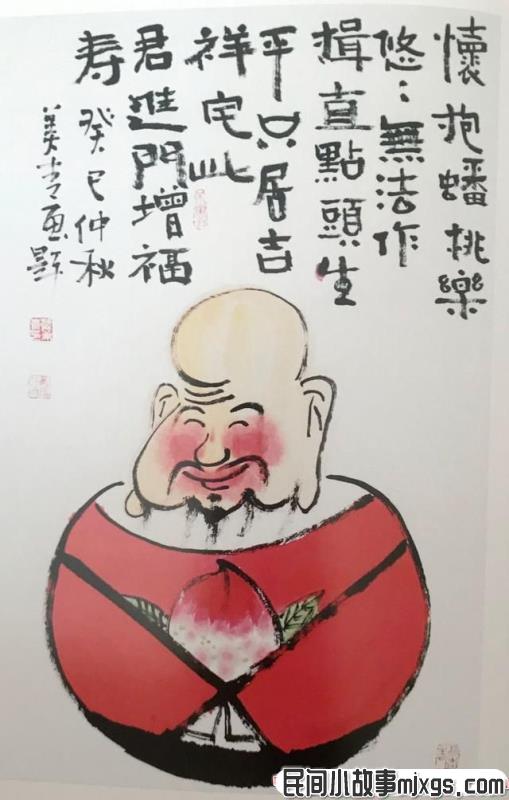 懷抱蟠挑樂
悠〻無法作
揖直點頭生
平只居吉
祥宅此
君進門增福
寿 癸巳仲秋
画
民间小故事mjxgs.com